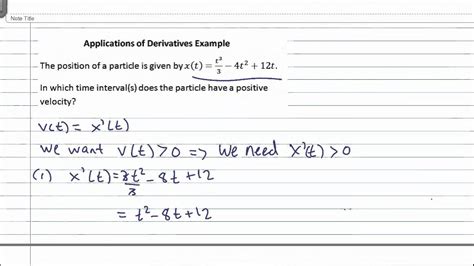 Note Title
Applications of Derivatives Example
The position of a particle is given by x(t) = t³/3 − 4t² + 12t.
In which time interval(s) does the particle have a positive
velocity?
v(t) = x'(t)
We want v(t) > 0 => We need x'(t) > 0
(1) x'(t) = 3t²/3 − 8t + 12
= t² − 8t + 12